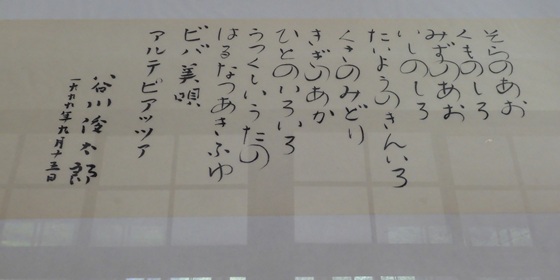 そらのあお
くものしろ
みずのあお
いしのしろ
たいようのきんいろ
くさのみどり
きぎのあか
ひとのいろいろ
うつくしいうたの
はるなつあきふゆ
ビバ美唄
アルテピアッツァ
谷川俊太郎
一九九九年九月十三日